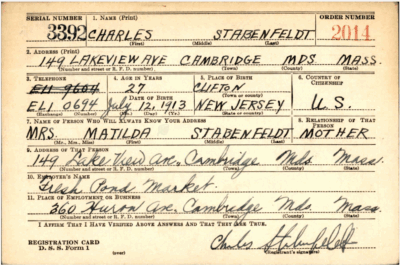 SERIAL NUMBER 1. NAME (Print) ORDER NUMBER
3392 CHARLES STABENFELDT 2014
(First) (Middle) (Last)
2. ADDRESS (Print)
149 LAKEVIEW AVE CAMBRIDGE MDS. MASS.
(Number and street or R. F. D. number) (Town) (County) (State)
3. TELEPHONE 4. AGE IN YEARS 5. PLACE OF BIRTH 6. COUNTRY OF CITIZENSHIP
ELI 9604 27 CLIFTON
DATE OF BIRTH (Town or county)
ELI 0694 July 12, 1913 NEW JERSEY U.S.
(Exchange) (Number) (Mo.) (Day) (Yr.) (State or country)
7. NAME OF PERSON WHO WILL ALWAYS KNOW YOUR ADDRESS 8. RELATIONSHIP OF THAT PERSON
MRS. MATILDA STABENFELDT MOTHER
(Mr., Mrs., Miss) (First) (Middle) (Last)
9. ADDRESS OF THAT PERSON
149 Lake View Ave., Cambridge Mds. Mass.
(Number and street or R. F. D. number) (Town) (County) (State)
10. EMPLOYER'S NAME
Fresh Pond Market.
11. PLACE OF EMPLOYMENT OR BUSINESS
360 Huron Ave., Cambridge Mds. Mass.
(Number and street or R. F. D. number) (Town) (County) (State)
I AFFIRM THAT I HAVE VERIFIED ABOVE ANSWERS AND THAT THEY ARE TRUE.
REGISTRATION CARD
D. S. S. Form 1 (over) Charles Stabenfeldt
(Registrant's signature)